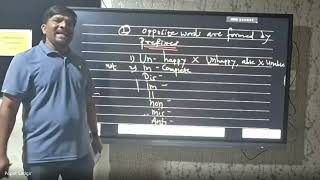 ① Opposite words are formed by
Prefixes
1) Un- happy X Unhappy, able X Unable
not 2) In - Complete
Dis -
Im -
Il -
non -
Mis -
Anti -